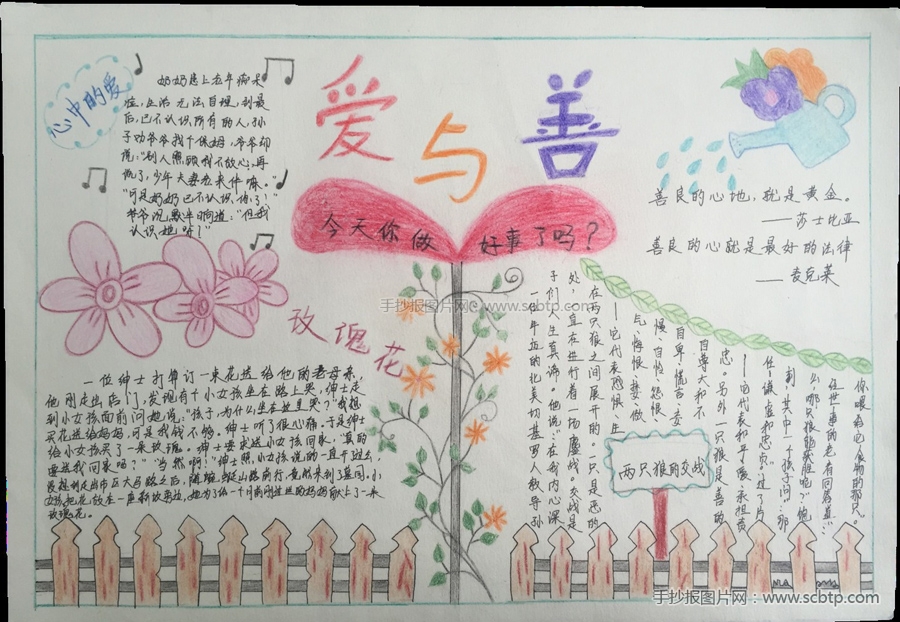 心中的爱
奶奶患上老年痴呆
症，生活无法自理，到最
后，已不认识所有的人，孙
子劝爷爷找个保姆，爷爷却
说：“别人照顾我不放心，再
说了，少年夫妻老来伴嘛。”
“可是奶奶已不认识你了！”
爷爷沉默半晌道：“但我
认识她呀！”
爱与善
今天你做 好事了吗？
善良的心地，就是黄金。
——莎士比亚
善良的心就是最好的法律
——麦克莱
玫瑰花
一位绅士打算订一束花送给他的老母亲，
他刚走出店门，发现有个小女孩坐在路上哭，绅士走
到小女孩面前问她说：“孩子，为什么坐在这里哭？”“我想
买花送给妈妈，可是我钱不够。绅士听了很心痛。于是绅士
给小女孩买了一束玫瑰。绅士要求送小女孩回家。“真的
要送我回家吗？”“当然啊！”绅士照小女孩说的一直开过去，
小
玫瑰花。
两只狼的交战
一个年迈的
人教导孙
子们人生真谛。他说：“在我内心深
处，一直在进行着一场鏖战。交战是
在两只狼之间展开的。一只是恶的
——它代表恐惧、生
气、悔恨、
、做
慢、自怜、怨恨、
自卑、谎言、妄
自尊大和不
忠。另外一只狼是善的
——它代表和平、爱、承担责
任、谦虚和忠
。”过了片
刻，其中一个孩子问：“那
么哪只狼能获胜呢？”饱
经世事的老者回答道：
你喂给它食物的那只。
手抄报图片网 www.scbtp.com
手抄报图片网：www.scbtp.com